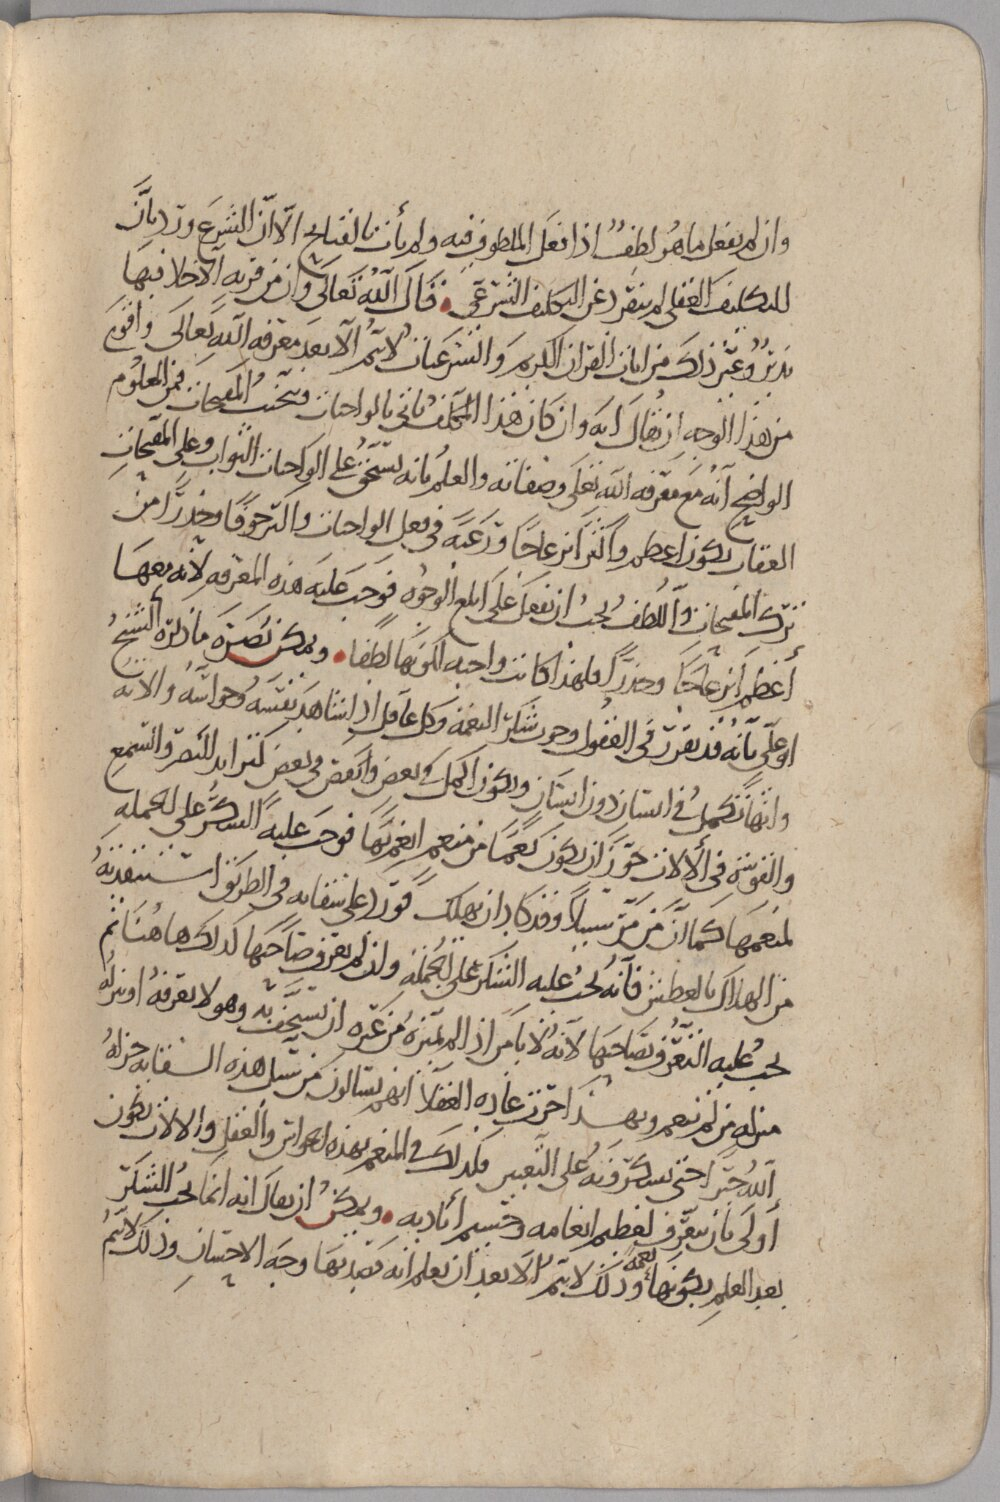 وان لم يفعل ما هو لطفٌ اذا فعل الملطوف فيه ولم يأت بالقبايح الّا انّ الشرع ورد بانّ
للتكليف العقلي لم ينفرد عن التكليف الشرعي قال الله تعالى وان من قرية الا خلا فيها
نذيرٌ وغير ذلك من ايات القران الكريم والشرعيات لا تتم الا بعد معرفه الله تعالى واقوى
من هذا الوجه ان يقال انه وان كان هذا المكلف ياتي بالواجبات ويتجنب المقبحات فمن المعلوم
الواضح انه مع معرفه الله تعلى وصفاته والعلم بانه يستحق على الواجبات الثواب وعلى المقبحات
العقاب يكون اعظم واكثر انزعاجًا ورغبه في فعل الواجبات واكثر خوفًا وحذرًا من
ترك المقبحات واللطف يجب ان يفعل على ابلغ الوجوه فوجب عليه هذه المعرفه لانه معها
أعظم انزعاجًا وحذرًا فلهذا كانت واجبه لكونها لطفا ويمكن نصرة ما ذكره الشيخ
ابو علي بانه قد تقرر في العقول وجوب شكر النعمة وكل عاقل اذا شاهد نفسه وحواسه والاته
وانها تكمل في انسان دون انسان ويكون اكمل في بعض وانقص في بعض كتزايد للبصر والسمع
والقوة في الالات جوّز ان يكون نعمًا من منعم انعم بها فوجب عليه الشكر على الجمله
لمنعمها كما انّ من مرّ سبيلًا وقد كاد ان يهلك فورد على سقايه في الطريق استنقذته
من الهلاك بالعطش فانه يجب عليه الشكر على الجملة وان لم يعرف صاحبها كذلك هاهنا ثم
يجب عليه التعرف بصاحبها لانه لا يامن اذا لم يميزه من غيره ان يستخف به وهو لا يعرفه او ينزله
منزله من لم ينعم وبهذا جرت عاده العقلا انهم يسالون من سبل هذه السقايه جزاهُ
الله خيرا حتى يشكرونه على التعيين فكذلك في المنعم بهذه الحواس والعقل والالات يكون
أولى بان يتعرف لعظم انعامه وجسيم أياديه ويمكن ان يقال انه انما يجب الشكر
بعد العلم بكونها نعمةً وذلك لا يتم الا بعد ان يعلم انه قصد بها وجه الاحسان وذلك لا يتم